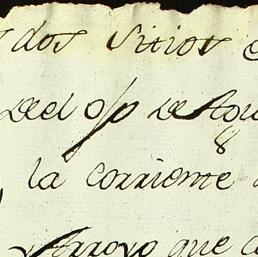 dos Sitios
Del ojo de Agu
la corriente
y Arroyo que c